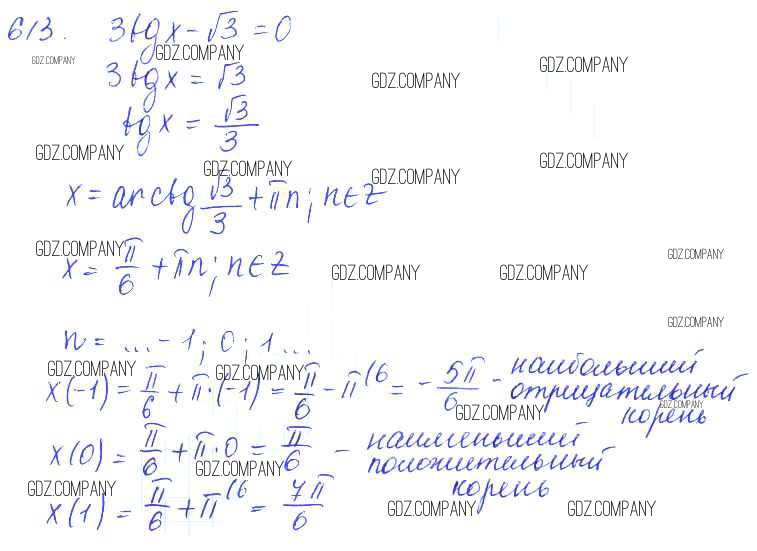 613. 3tg x - √3 = 0
GDZ.COMPANY GDZ.COMPANY GDZ.COMPANY
3tg x = √3 GDZ.COMPANY
tg x = √3/3
GDZ.COMPANY GDZ.COMPANY GDZ.COMPANY GDZ.COMPANY
x = arctg √3/3 + πn; n∈Z
GDZ.COMPANY GDZ.COMPANY
x = π/6 + πn; n∈Z GDZ.COMPANY GDZ.COMPANY
GDZ.COMPANY
n = ... -1; 0; 1 ...
GDZ.COMPANY GDZ.COMPANY
x(-1) = π/6 + π·(-1) = π/6 - π^(6 = - 5π/6 - наибольший
отрицательный
GDZ.COMPANY GDZ.COMPANY
корень
x(0) = π/6 + π·0 = π/6 - наименьший
положительный
GDZ.COMPANY GDZ.COMPANY
корень
x(1) = π/6 + π^(6 = 7π/6
GDZ.COMPANY GDZ.COMPANY